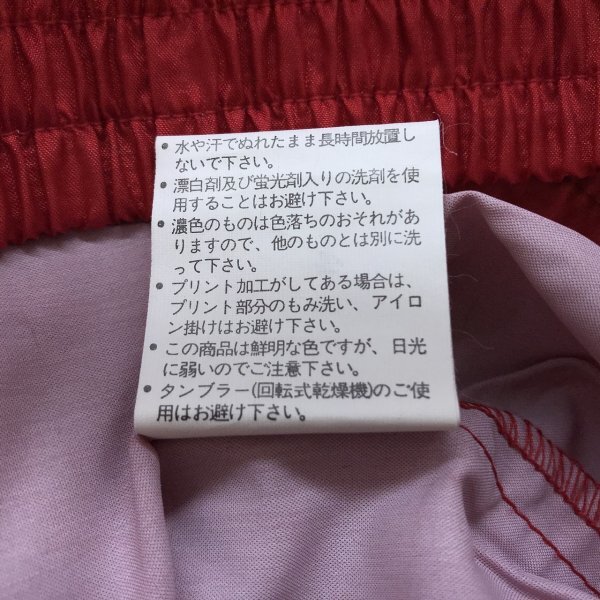 • 水や汗でぬれたまま長時間放置し
ないで下さい。
• 漂白剤及び蛍光剤入りの洗剤を使
用することはお避け下さい。
• 濃色のものは色落ちのおそれがあ
りますので、他のものとは別に洗
って下さい。
• プリント加工がしてある場合は、
プリント部分のもみ洗い、アイロ
ン掛けはお避け下さい。
• この商品は鮮明な色ですが、日光
に弱いのでご注意下さい。
• タンブラー(回転式乾燥機)のご使
用はお避け下さい。